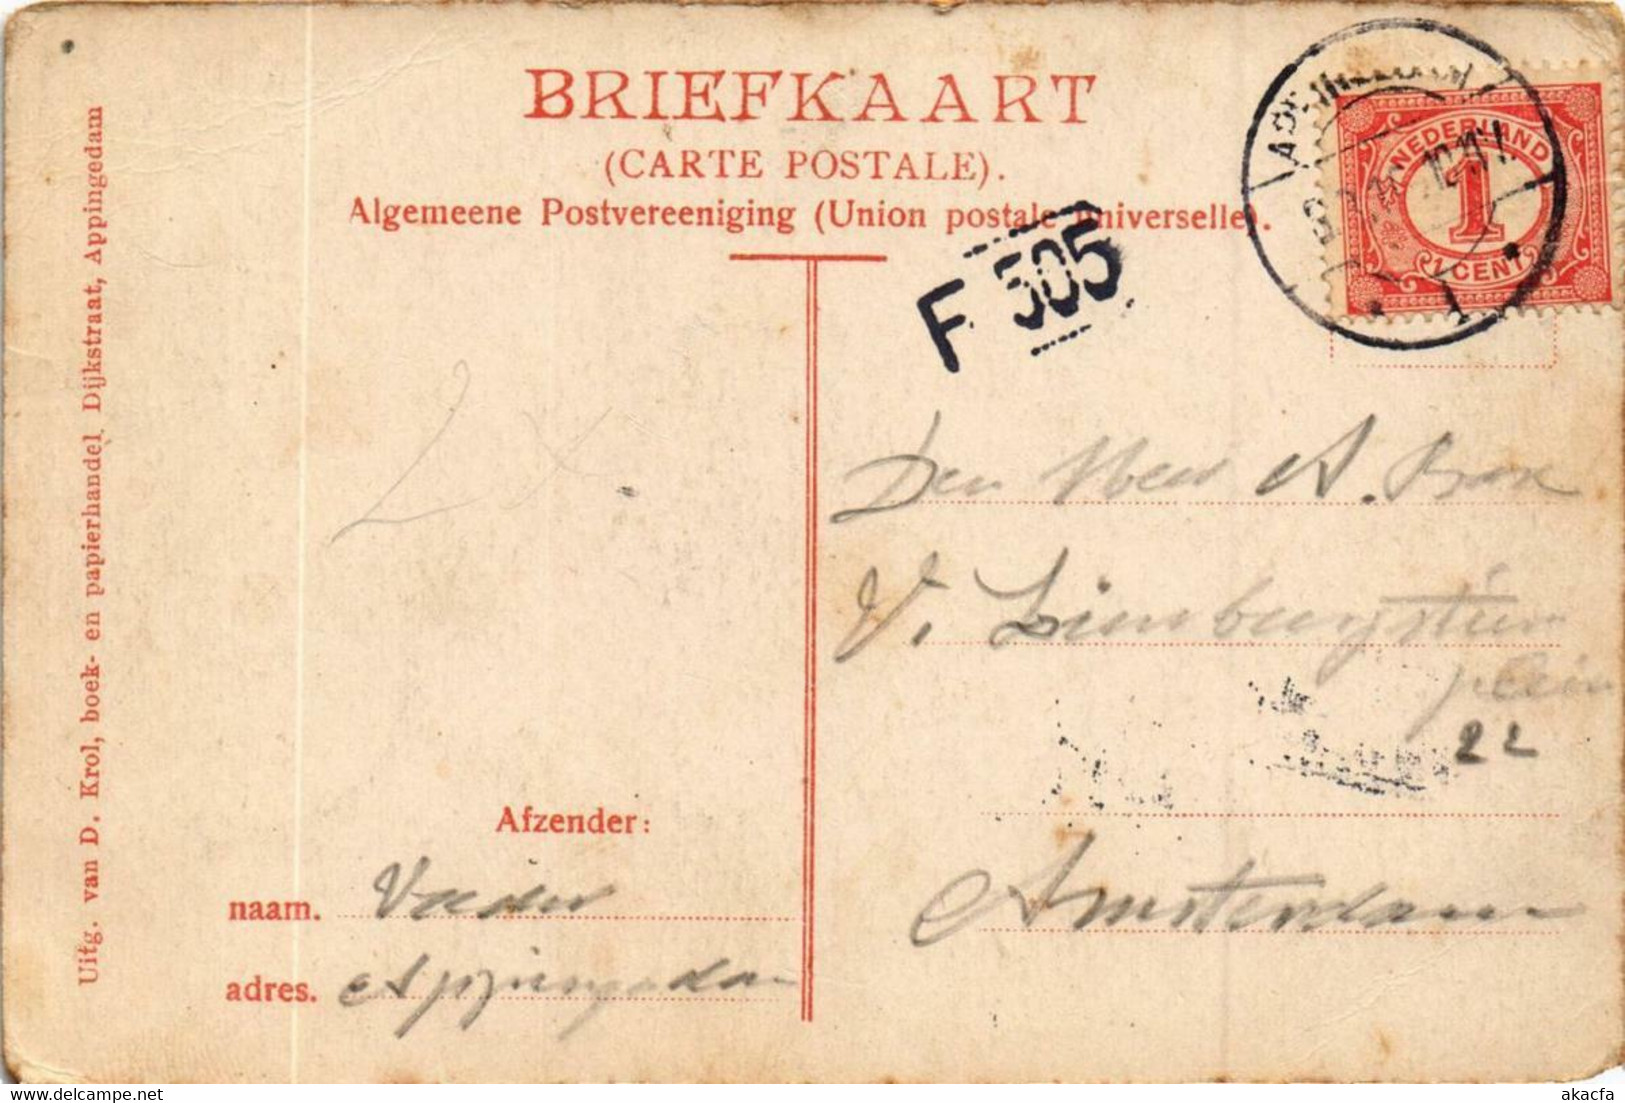 BRIEFKAART
(CARTE POSTALE).
Algemeene Postvereeniging (Union postale universelle).
F 505
NEDERLAND
1
1 CENT
Uitg. van D. Krol, boek- en papierhandel, Dijkstraat, Appingedam
Den Heer A.
V. Limburgstirum
plein
22
Amsterdam
Afzender:
naam. Vader
adres. Appingedam
akacfa